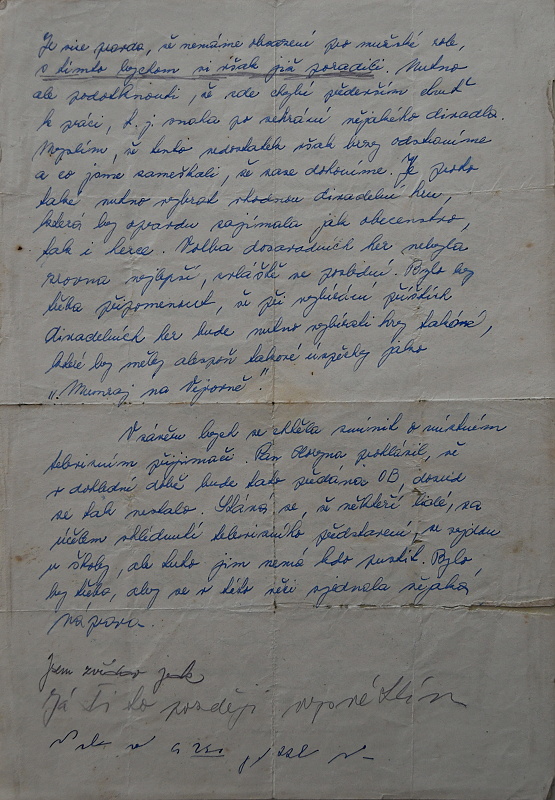 Je sice pravda, že nemáme obsazení pro mužské role,
s tímto bychom si však již poradili. Nutno
ale podotknouti, že zde chybí především chuť
k práci, t. j. snaha po sehrání nějakého divadla.
Myslím, že tento nedostatek však brzy odstraníme
a co jsme zameškali, že zase dohoníme. Je proto
také nutno vybrat vhodnou divadelní hru,
která by opravdu zajímala jak obecenstvo,
tak i herce. Volba dosavadních her nebyla
zrovna nejlepší, zvláště ve poslední. Bylo by
třeba připomenout, že při vybírání příštích
divadelních her bude nutno vybírati hry takové,
které by měly alespoň takové úspěchy jako
„Mumraj na Veporně".
V závěru bych se chtěla zmínit o místním
televizním přijímači. Pan prohlásil, že
v dohledné době bude tato předána OB, dosud
se tak nestalo. Stává se, že někteří lidé, za
účelem shlédnutí televizního představení, se sejdou
u školy, ale tuto jim nemá kdo pustit. Bylo
by třeba, aby se v této věci sjednala nějaká
náprava.
Jsem jak
Já Ti to později vysvětlím